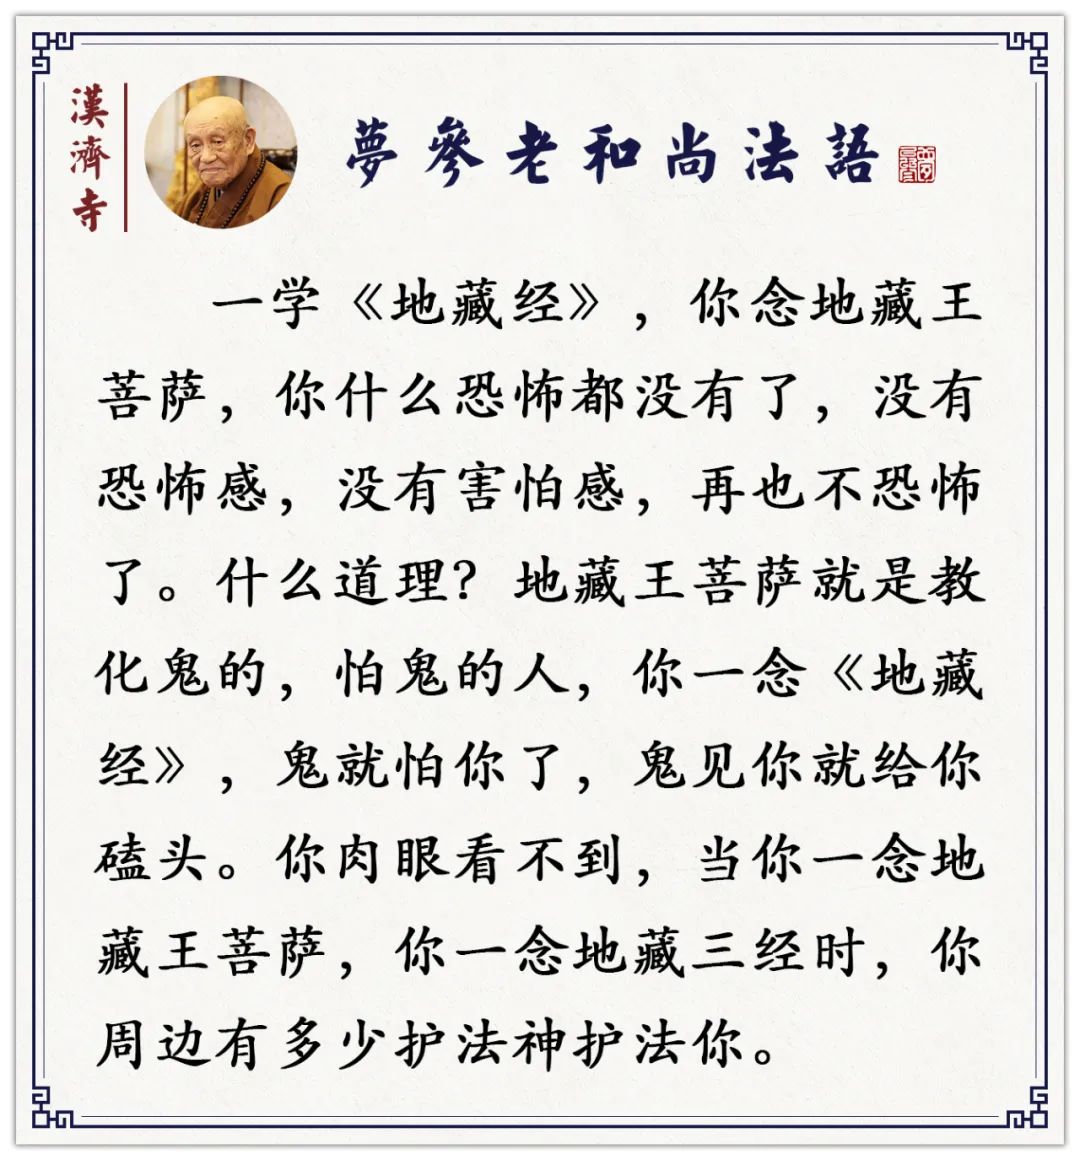 漢濟寺
夢參老和尚法語
一学《地藏经》，你念地藏王
菩萨，你什么恐怖都没有了，没有
恐怖感，没有害怕感，再也不恐怖
了。什么道理？地藏王菩萨就是教
化鬼的，怕鬼的人，你一念《地藏
经》，鬼就怕你了，鬼见你就给你
磕头。你肉眼看不到，当你一念地
藏王菩萨，你一念地藏三经时，你
周边有多少护法神护法你。